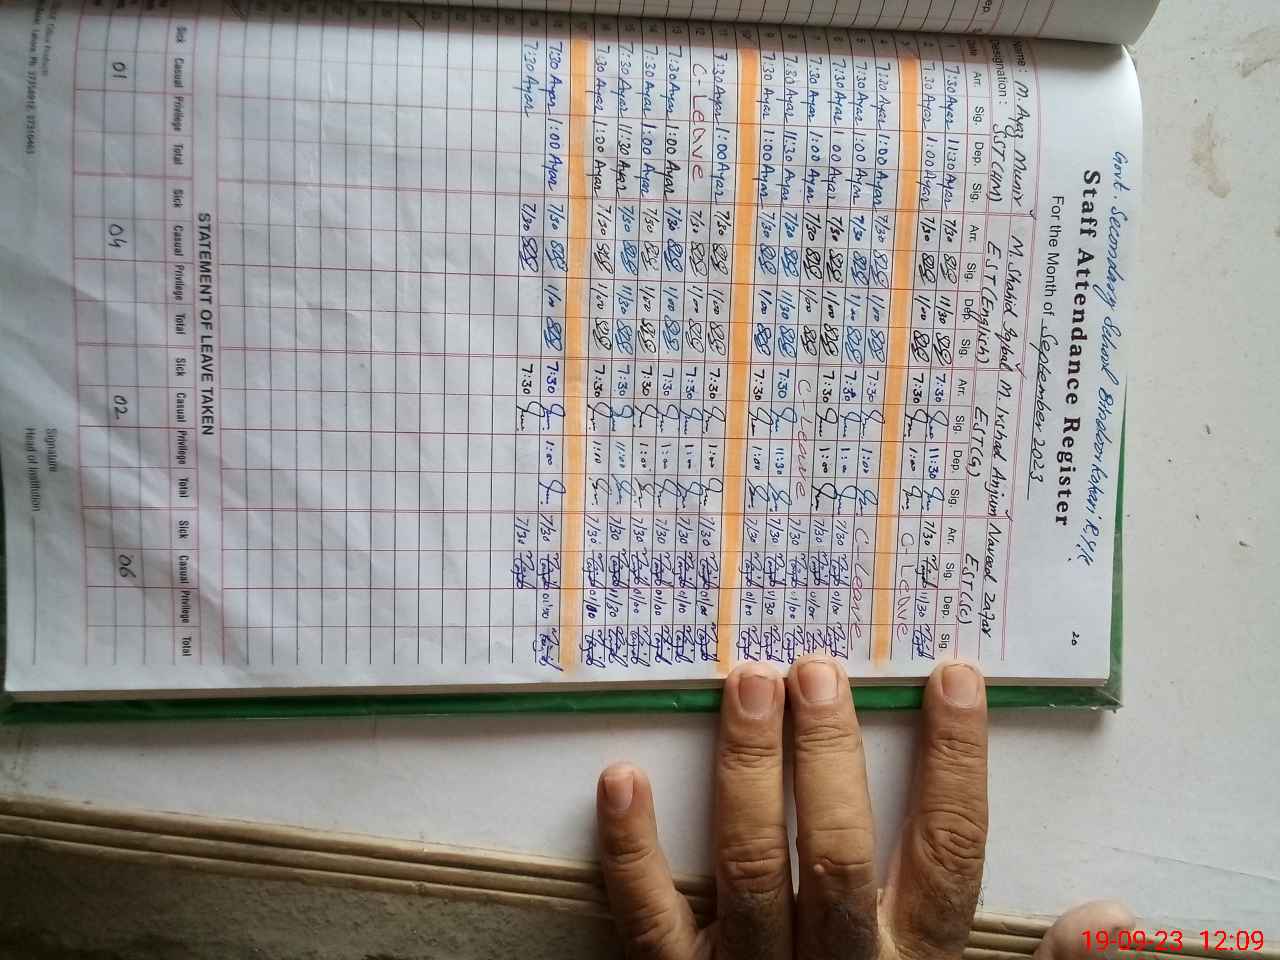 Govt. Secondary School
Staff Attendance Register
20
For the Month of September 2023
Name: M. Ayaz Munir M. Shahid Iqbal M. Irshad Anjum Naveed Zafar
Designation: SST(HM) EST(English) EST(G) EST(Sc)
Date Arr. Sig. Dep. Sig. Arr. Sig. Dep. Sig. Arr. Sig. Dep. Sig. Arr. Sig. Dep. Sig.
1 7:30 Ayaz 11:30 Ayaz 7/30 11/30 7:30 11:30 7/30 11/30
2 7:30 Ayaz 1:00 Ayaz 7/30 1/00 7:30 1:00 C-Leave
3
4 7:30 Ayaz 1:00 Ayaz 7/30 1/00 7:30 1:00 C-Leave
5 7:30 Ayaz 1:00 Ayaz 7/30 1/00 7:30 1:00 7/30 01/00
6 7:30 Ayaz 1:00 Ayaz 7/30 1/00 7:30 1:00 7/30 01/00
7 7:30 Ayaz 1:00 Ayaz 7/30 1/00 C-Leave 7/30 01/00
8 7:30 Ayaz 11:30 Ayaz 7/30 11/30 7:30 11:30 7/30 11/30
9 7:30 Ayaz 1:00 Ayaz 7/30 1/00 7:30 1:00 7/30 01/00
10
11 7:30 Ayaz 1:00 Ayaz 7/30 1/00 7:30 1:00 7/30 01/00
12 C-Leave 7/30 1/00 7:30 1:00 7/30 01/00
13 7:30 Ayaz 1:00 Ayaz 7/30 1/00 7:30 1:00 7/30 01/00
14 7:30 Ayaz 1:00 Ayaz 7/30 1/00 7:30 1:00 7/30 01/00
15 7:30 Ayaz 11:30 Ayaz 7/30 11/30 7:30 11:00 7/30 11/30
16 7:30 Ayaz 1:00 Ayaz 7/30 1/00 7:30 1:00 7/30 01/00
17
18 7:30 Ayaz 1:00 Ayaz 7/30 1/00 7:30 1:00 7/30 01/00
19 7:30 Ayaz 7/30 7:30 7/30
STATEMENT OF LEAVE TAKEN
Sick Casual Privilege Total Sick Casual Privilege Total Sick Casual Privilege Total Sick Casual Privilege Total
01 04 02 06
Signature
Head of Institution
19-09-23 12:09